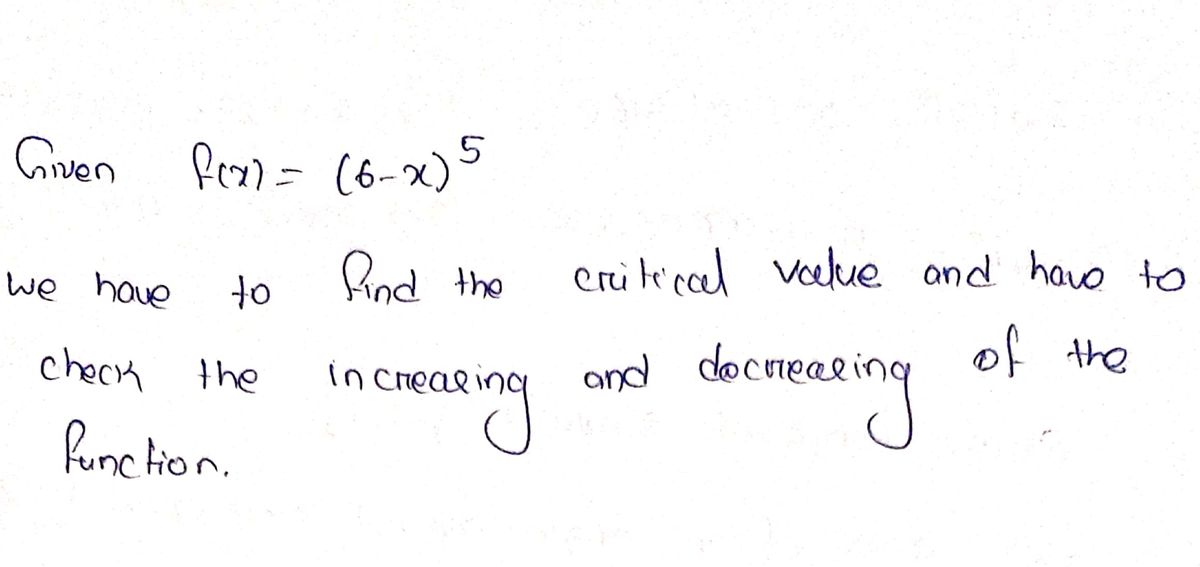 Given f(x) = (6-x)^5
we have to find the critical value and have to
check the increasing and decreasing of the
function.